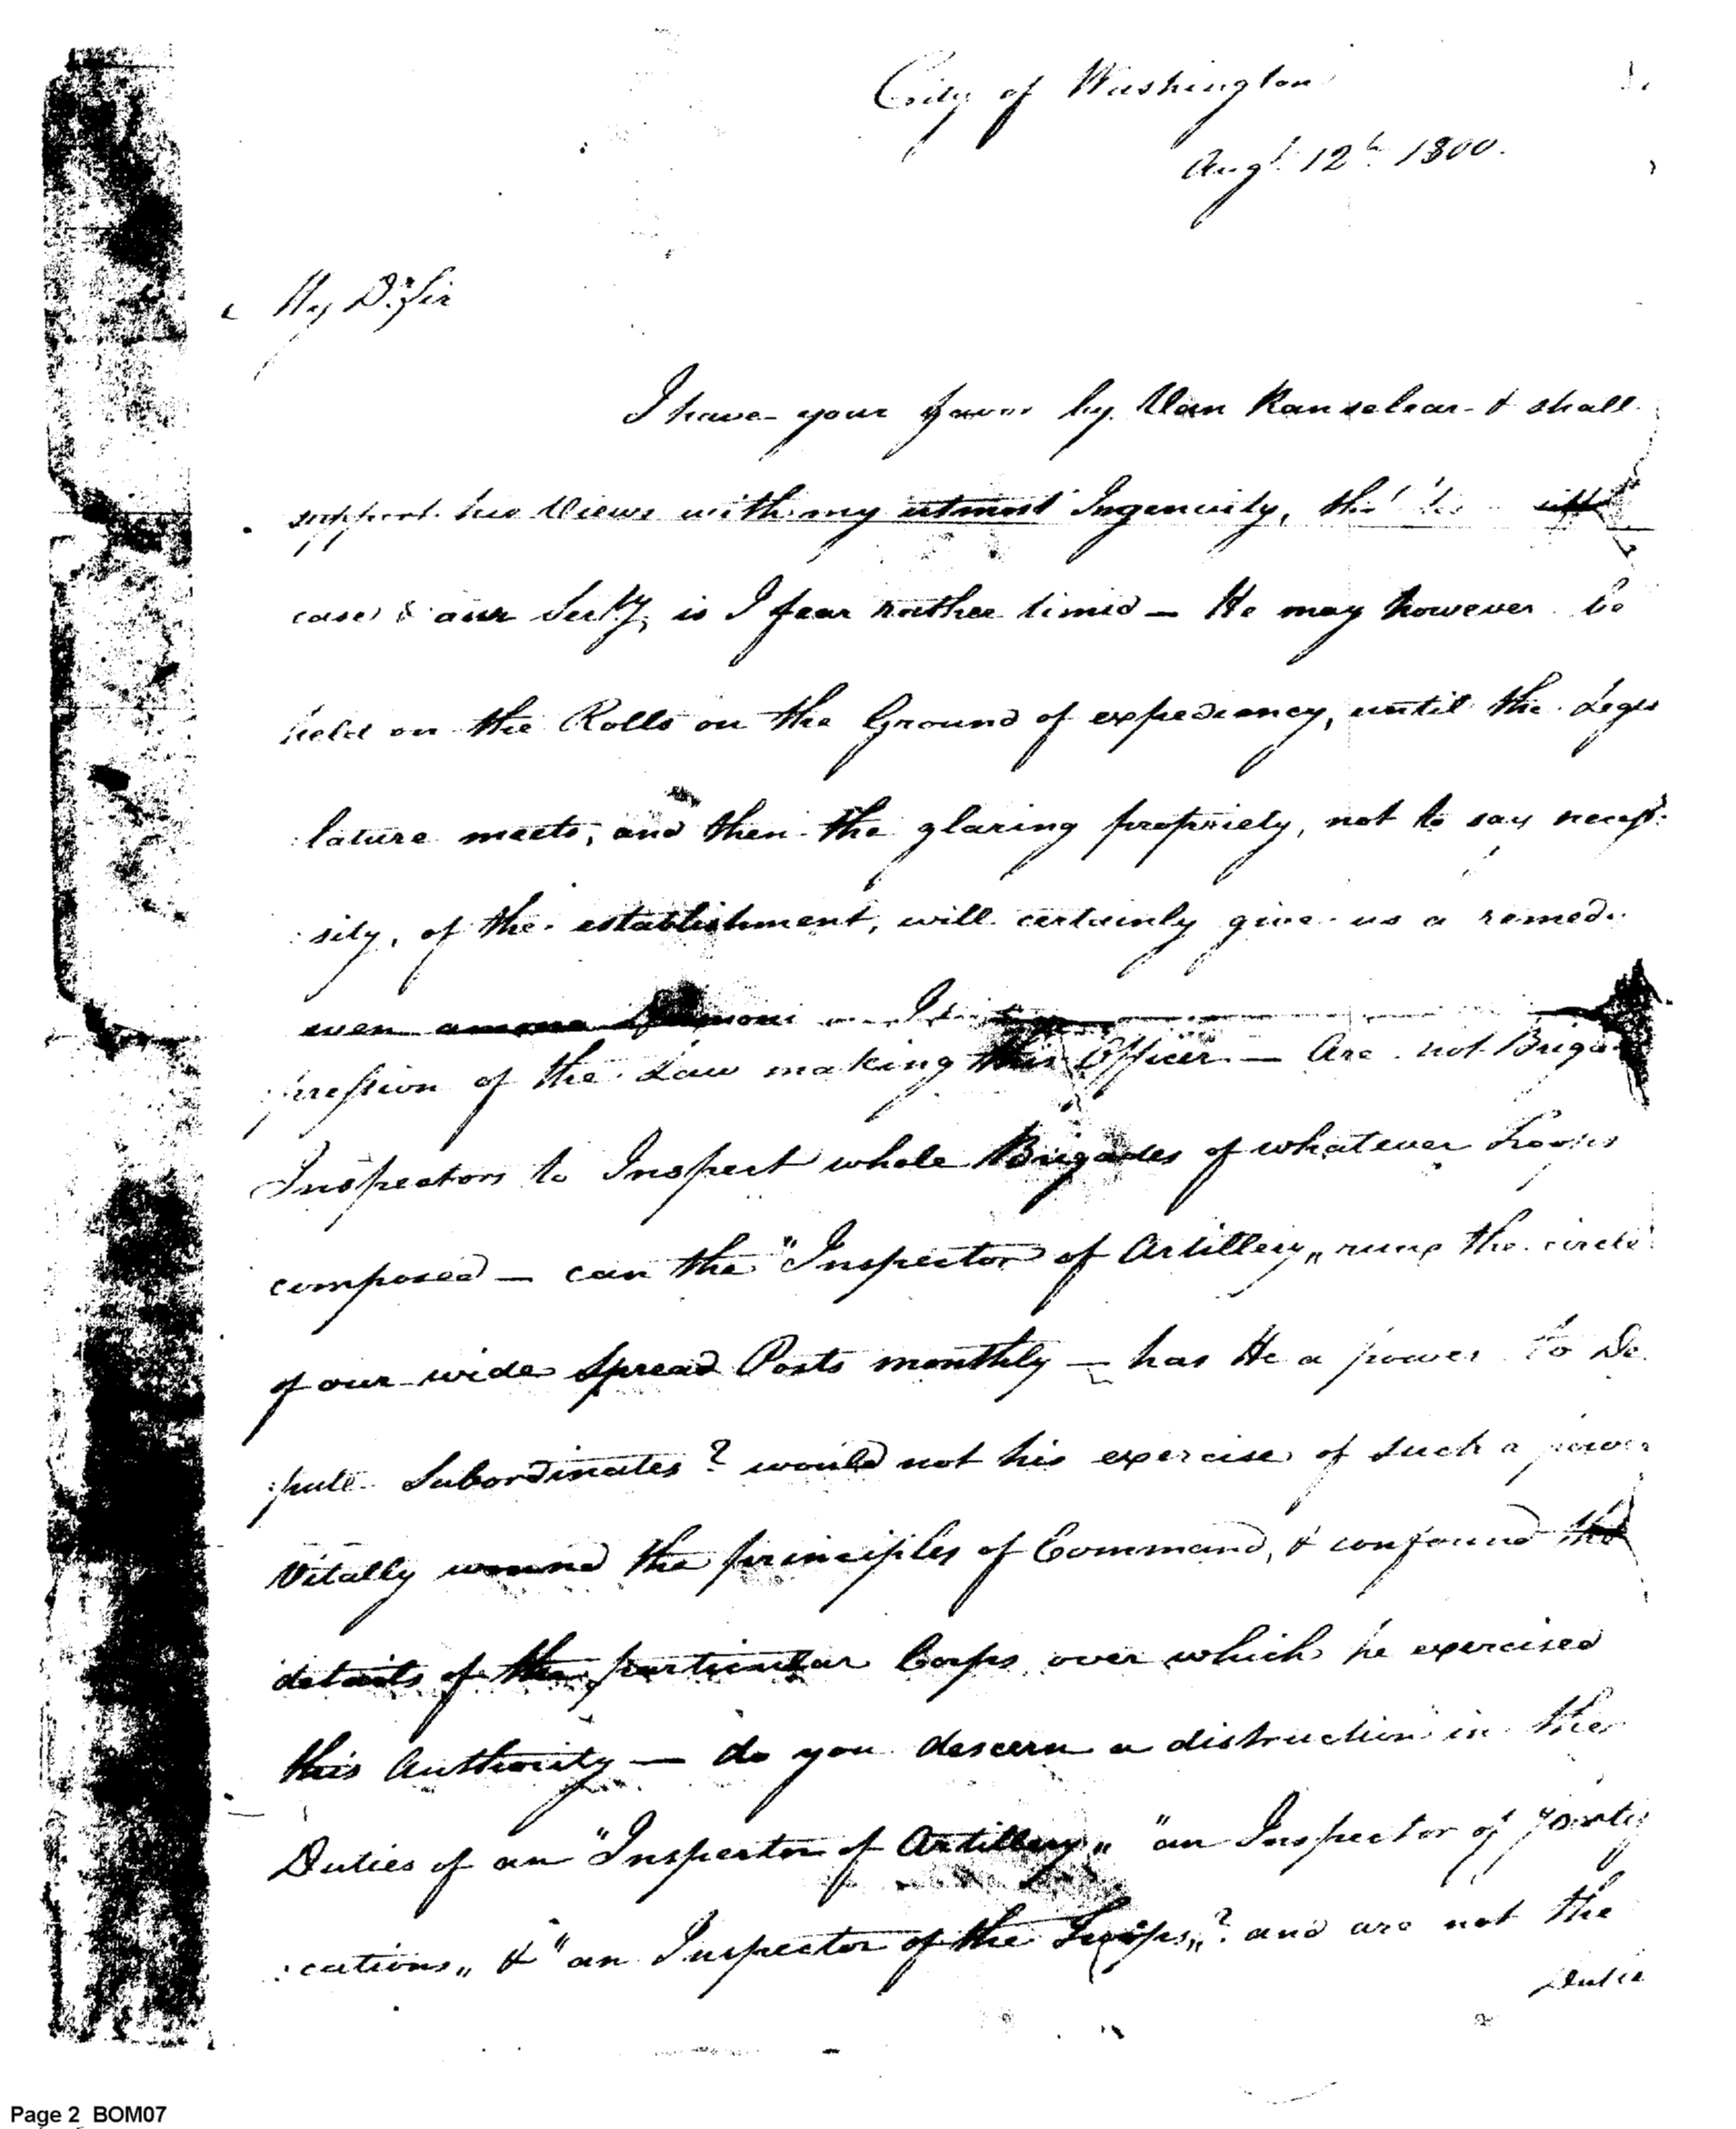 City of Washington
Augt. 12th 1800.
My Dr. Sir
I have your favor by Van Ranselear & shall
support his Views with my utmost Ingenuity, tho'
case & our Secty, is I fear rather timid — He may however be
held on the Rolls on the Ground of expediency, until the Legis
lature meets, and then the glaring propriety, not to say neces:
:sity, of the establishment, will certainly give us a remedy
even among
:pression of the Law making this Officer — Are not Brigade
Inspectors to Inspect whole Brigades of whatever Troops
composed — can the "Inspector of Artillery" runs the circle
of our wide spread Posts monthly — has He a power to De
:pute Subordinates? would not his exercise of such a power
Vitally wound the principles of Command, & confound the
details of the particular Corps over which he exercised
this Authority — do you descern a distinction in the
Duties of an "Inspector of Artillery" "an Inspector of Fortifi
:cations" & "an Inspector of the Troops"? and are not the
Duties
Page 2 BOM07